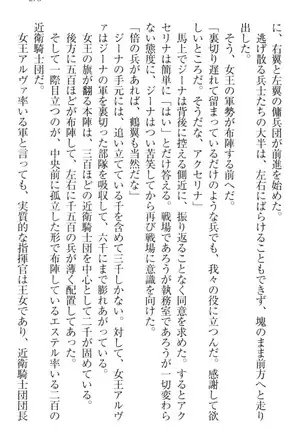 に、右翼と左翼の傭兵団が前進を始めた。
逃げ散る兵士たちの大半は、左右にばらけることもできず、塊のまま前方へと走
出した。
そう、女王の軍勢が布陣する前へだ。
「裏切り遅れて狙われているだけのような兵でも、我々の役に立つんだ。感謝して欲
しいところだ。そうだろう、アクセリナ」
馬上でジーナは背後に控える側近に、振り返ることなく同意を求める。するとアク
セリナは簡単に「はい」とだけ答える。戦場であろうが執務室であろうが一切変わら
ない態度に、ジーナはつい苦笑してから再び戦場に意識を向けた。
「倍の兵があれば、鶴翼も当然だな」
ジーナの手元には、追い立てている千を含めて三千しかない。対して、女王アルヴ
ァはジーナの軍を裏切った部隊を吸収して、六千にまで膨れあがっている。
女王の旗が翻る本陣は、三百ほどの近衛騎士団を中心として二千が固めている。
後方に五百ほどが布陣して、左右に千五百の兵が薄く配置してあった。
そして一際目立つのが、中央前に孤立した形で布陣しているエステル率いる二百の
近衛騎士団だ。
女王アルヴァ率いる軍と言っても、実質的な指揮官は王女であり、近衛騎士団団長